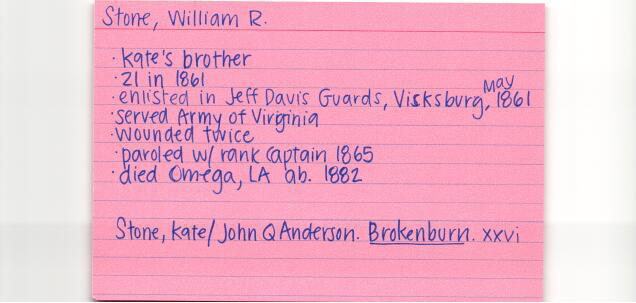 Stone, William R.
· Kate's brother
· 21 in 1861
· enlisted in Jeff Davis Guards, Vicksburg, May 1861
· served Army of Virginia
· wounded twice
· paroled w/ rank Captain 1865
· died Omega, LA ab. 1882
Stone, Kate/ John Q Anderson. Brokenburn. xxvi